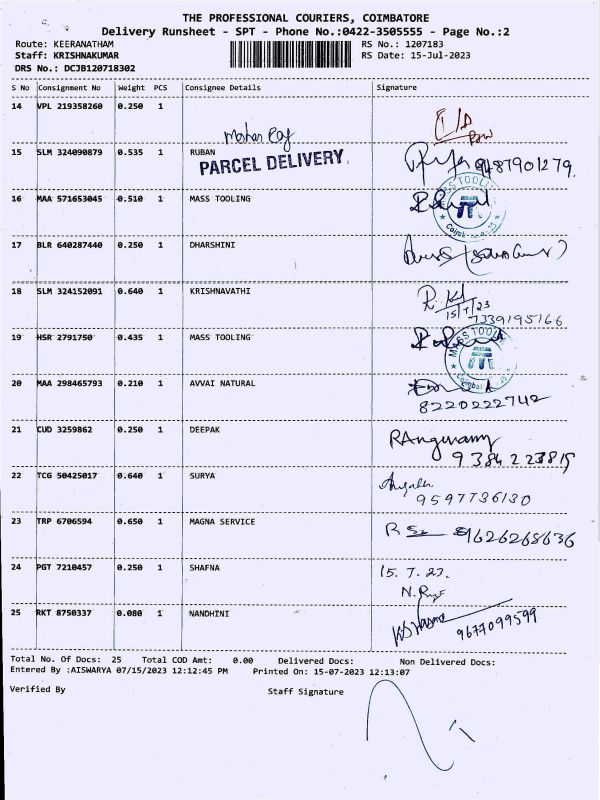 THE PROFESSIONAL COURIERS, COIMBATORE
Delivery Runsheet - SPT - Phone No.:0422-3505555 - Page No.:2
Route: KEERANATHAM RS No.: 1207183
Staff: KRISHNAKUMAR RS Date: 15-Jul-2023
DRS No.: DCJB120718302
S No Consignment No Weight PCS Consignee Details Signature
14 VPL 219358260 0.250 1
15 SLM 324090879 0.535 1 RUBAN 9487901279.
PARCEL DELIVERY
16 MAA 571653045 0.510 1 MASS TOOLING
17 BLR 640287440 0.250 1 DHARSHINI
18 SLM 324152091 0.640 1 KRISHNAVATHI
15/7/23
7339195166
19 HSR 2791750 0.435 1 MASS TOOLING
20 MAA 298465793 0.210 1 AVVAI NATURAL
8220222742
21 CUD 3259862 0.250 1 DEEPAK
9384223815
22 TCG 50425017 0.640 1 SURYA
9597736130
23 TRP 6706594 0.650 1 MAGNA SERVICE 9626268636
24 PGT 7210457 0.250 1 SHAFNA 15.7.23.
25 RKT 8750337 0.080 1 NANDHINI 9677099599
Total No. Of Docs: 25 Total COD Amt: 0.00 Delivered Docs: Non Delivered Docs:
Entered By :AISWARYA 07/15/2023 12:12:45 PM Printed On: 15-07-2023 12:13:07
Verified By Staff Signature